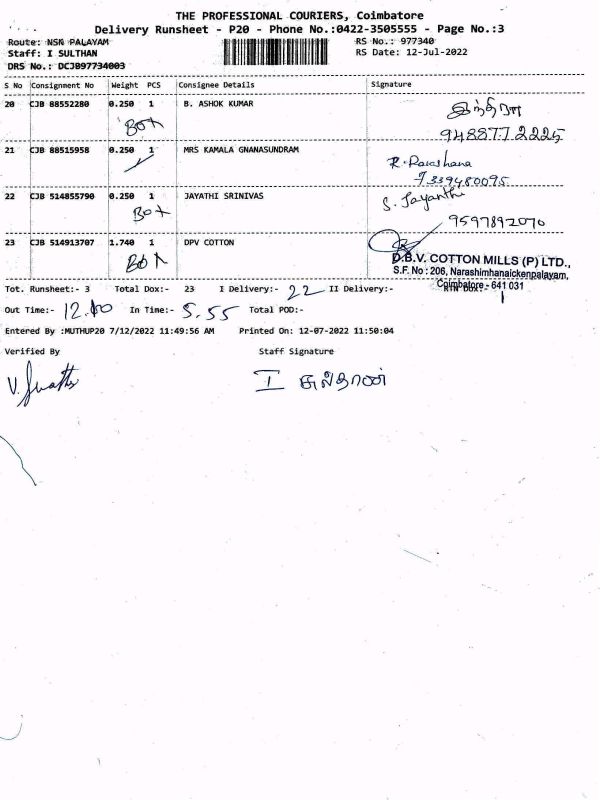 THE PROFESSIONAL COURIERS, Coimbatore
Delivery Runsheet - P20 - Phone No.:0422-3505555 - Page No.:3
Route: NSN PALAYAM RS No.: 977340
Staff: I SULTHAN RS Date: 12-Jul-2022
DRS No.: DCJB97734003
S No Consignment No Weight PCS Consignee Details Signature
20 CJB 88552280 0.250 1 B. ASHOK KUMAR இந்திரா
Box 9488772225
21 CJB 88515958 0.250 1 MRS KAMALA GNANASUNDRAM R.
7339480095
22 CJB 514855790 0.250 1 JAYATHI SRINIVAS S. Jayanthi
Box 9597892070
23 CJB 514913707 1.740 1 DPV COTTON
Box D.B.V. COTTON MILLS (P) LTD.,
S.F. No : 206, Narashimhanaickenpalayam,
Coimbatore - 641 031
Tot. Runsheet:- 3 Total Dox:- 23 I Delivery:- 22 II Delivery:- RTN Dox:- 1
Out Time:- 12.00 In Time:- 5.55 Total POD:-
Entered By :MUTHUP20 7/12/2022 11:49:56 AM Printed On: 12-07-2022 11:50:04
Verified By Staff Signature
I சுல்தான்